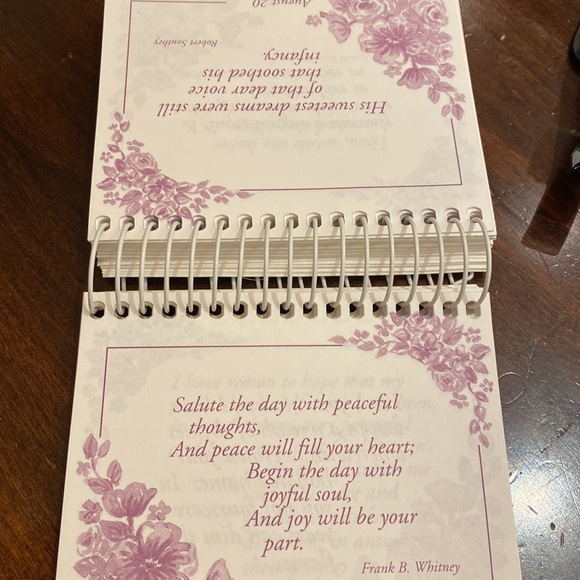 His sweetest dreams were still
of that dear voice
that soothed his
infancy.
Robert Southey
August 20
Salute the day with peaceful
thoughts,
And peace will fill your heart;
Begin the day with
joyful soul,
And joy will be your
part.
Frank B. Whitney